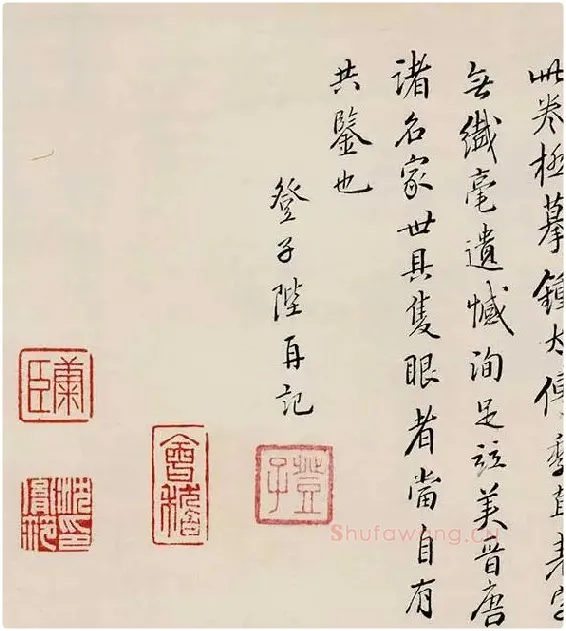 此卷極摹鍾太傅季直表
無纖毫遺憾洵足竝美晉唐
諸名家世具隻眼者當自有
共鑒也
登子陛再記
登子
會稽
康臣
沈印胤範
Shufawang.cn